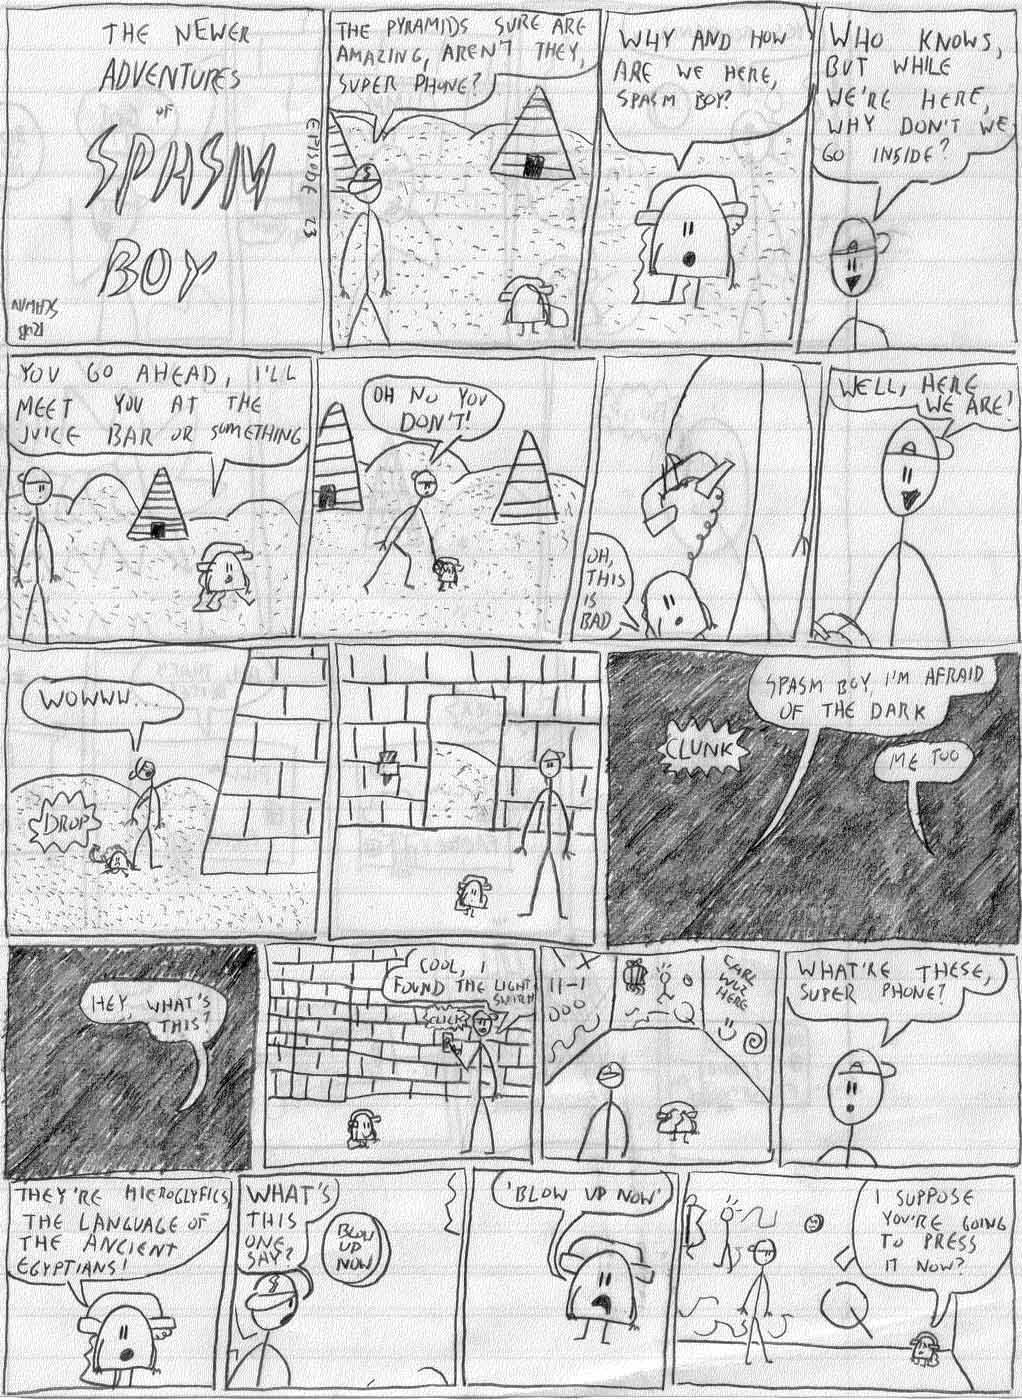 THE NEWER
ADVENTURES
OF
SPASM
BOY
EPISODE 23
THE PYRAMIDS SURE ARE
AMAZING, AREN'T THEY,
SUPER PHONE?
WHY AND HOW
ARE WE HERE,
SPASM BOY?
WHO KNOWS,
BUT WHILE
WE'RE HERE,
WHY DON'T WE
GO INSIDE?
YOU GO AHEAD, I'LL
MEET YOU AT THE
JUICE BAR OR SOMETHING
OH NO YOU
DON'T!
OH,
THIS
IS
BAD
WELL, HERE
WE ARE!
WOWWW...
DROP
CLUNK
SPASM BOY, I'M AFRAID
OF THE DARK
ME TOO
HEY, WHAT'S
THIS?
COOL, I
FOUND THE LIGHT
SWITCH
CLICK
11-1
CARL
WUZ
HERE
WHAT'RE THESE,
SUPER PHONE?
THEY'RE HIEROGLYFICS,
THE LANGUAGE OF
THE ANCIENT
EGYPTIANS!
WHAT'S
THIS
ONE
SAY?
BLOW
UP
NOW
'BLOW UP NOW'
I SUPPOSE
YOU'RE GOING
TO PRESS
IT NOW?